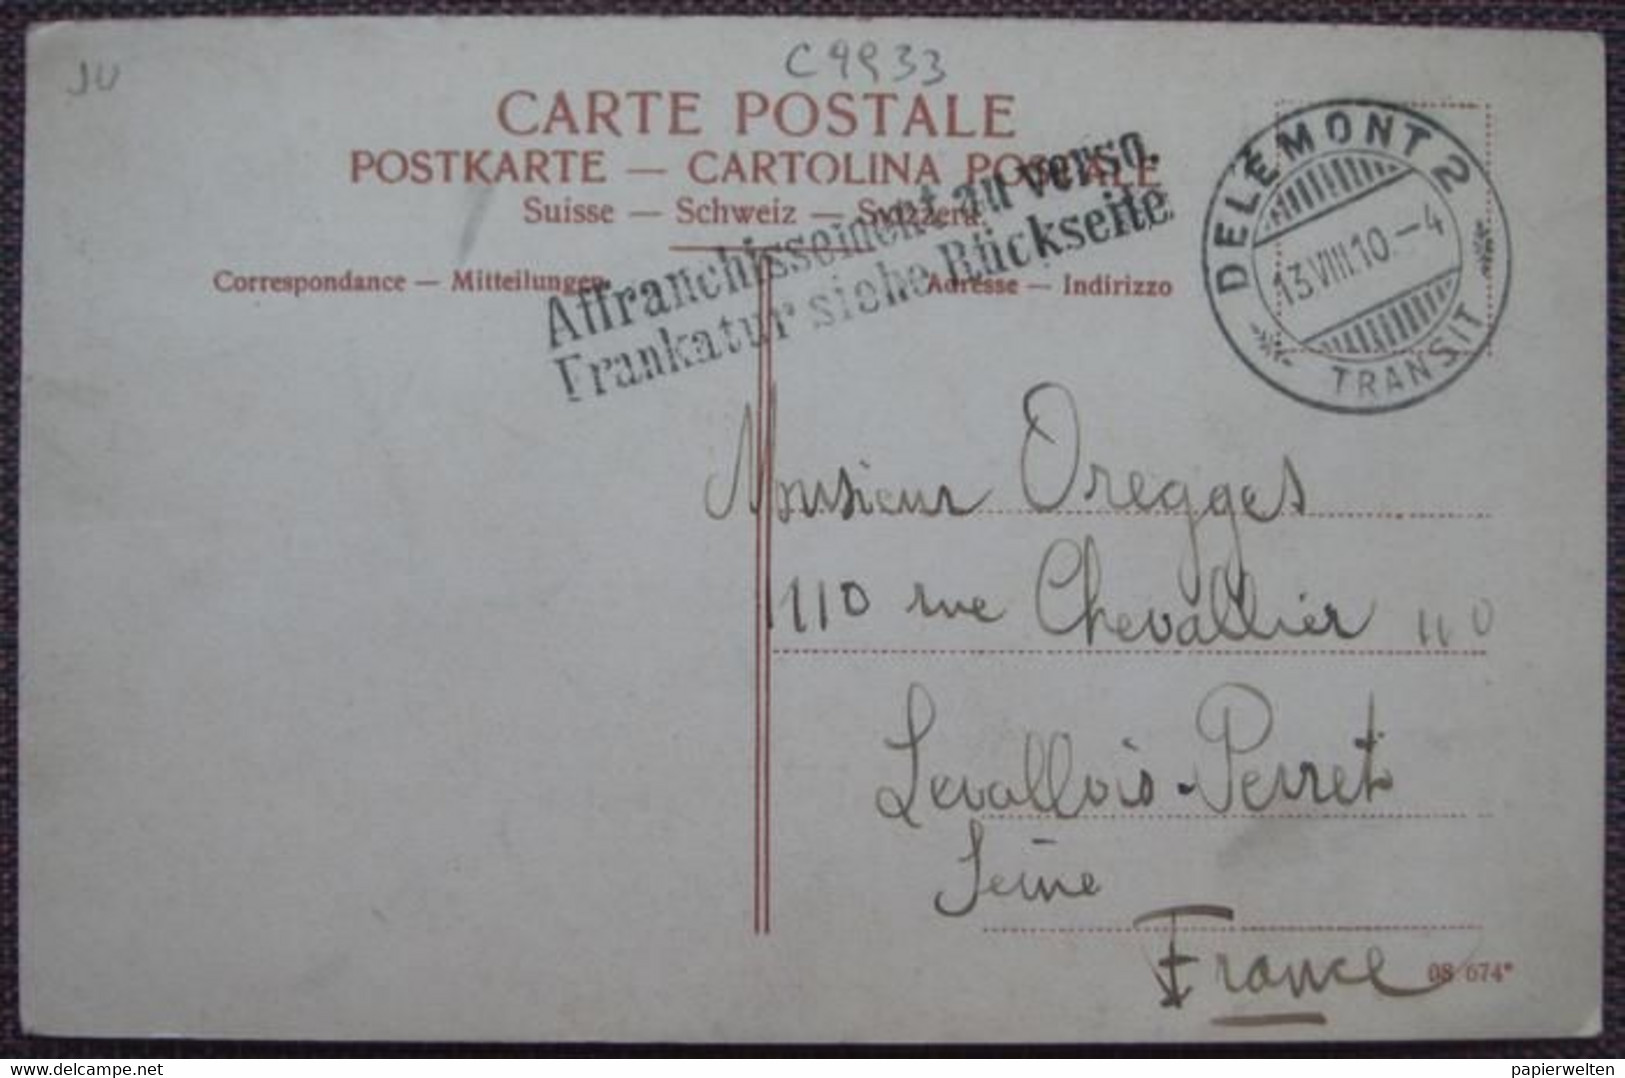 C9933
JU
CARTE POSTALE
POSTKARTE — CARTOLINA POSTALE
Suisse — Schweiz — Svizzera
Correspondance — Mitteilungen
Adresse — Indirizzo
Affranchissement au verso.
Frankatur siehe Rückseite
DELÉMONT 2
13.VIII.10.–4
TRANSIT
Monsieur Oregges
110 rue Chevallier 110
Levallois-Perret
Seine
France
08 674*
delcampe.net
papierwelten